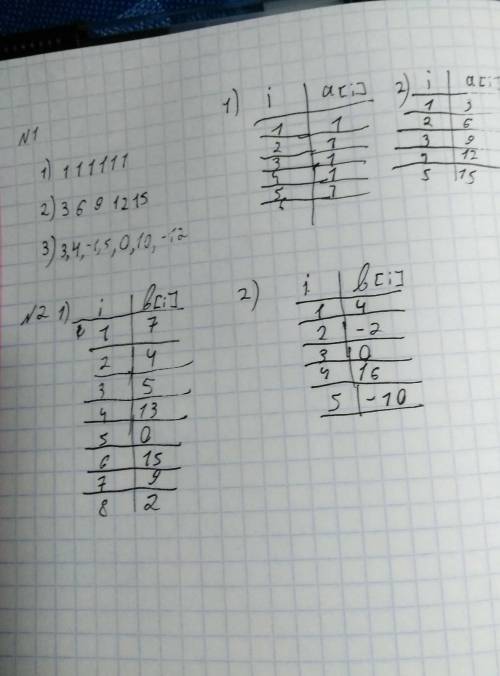 N1
1) 1 1 1 1 1 1
2) 3 6 9 12 15
3) 3, 4, -1, 5, 0, 10, -12
1)
i a[i]
1 1
2 1
3 1
4 1
5 1
2)
i a[i]
1 3
2 6
3 9
12
5 15
N2 1)
i b[i]
1 7
2 4
3 5
4 13
5 0
6 15
7 9
8 2
2)
i b[i]
1 4
2 -2
3 0
4 16
5 -10